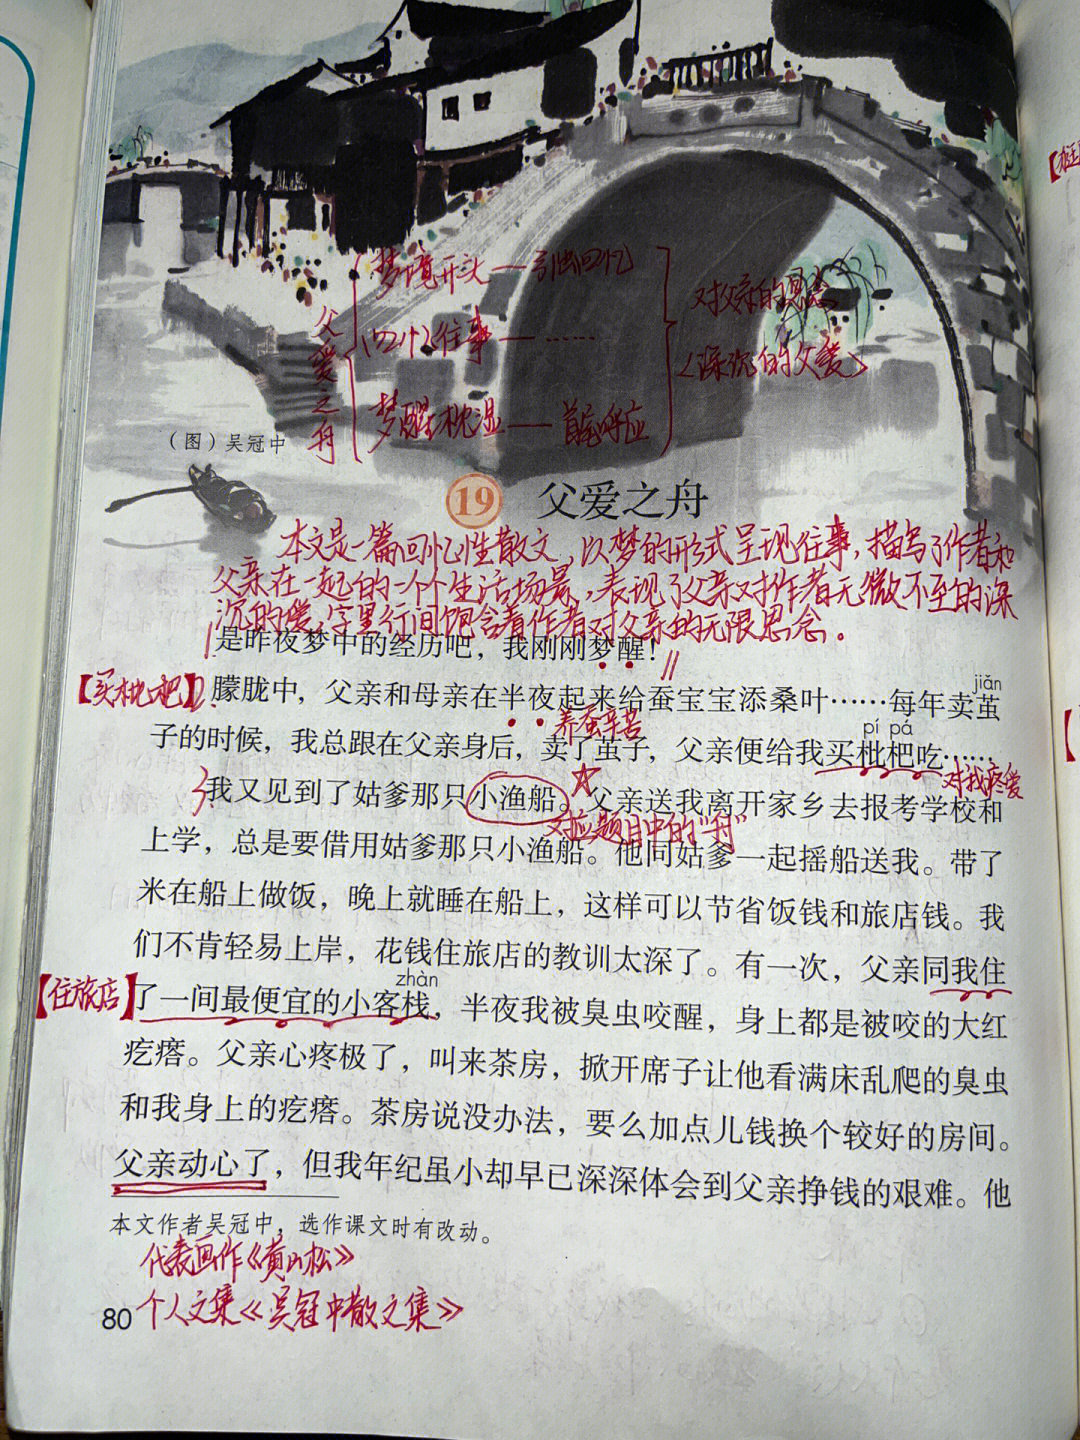 梦境开头——引出回忆
父爱之舟
(四个)往事——……
对父亲的思念
(深沉的父爱)
梦醒枕湿——首尾呼应
(图)吴冠中
19 父爱之舟
本文是一篇回忆性散文,以梦的形式呈现往事,描写了作者和
父亲在一起的一个个生活场景,表现了父亲对作者无微不至的深
沉的爱,字里行间饱含着作者对父亲的无限思念。
是昨夜梦中的经历吧,我刚刚梦醒!
【买枇杷】
朦胧中,父亲和母亲在半夜起来给蚕宝宝添桑叶……每年卖茧
jiǎn
养蚕辛苦
pí pá
子的时候,我总跟在父亲身后,卖了茧子,父亲便给我买枇杷吃……
对我疼爱
我又见到了姑爹那只小渔船。父亲送我离开家乡去报考学校和
对应题目中的“舟”
上学,总是要借用姑爹那只小渔船。他同姑爹一起摇船送我。带了
米在船上做饭,晚上就睡在船上,这样可以节省饭钱和旅店钱。我
们不肯轻易上岸,花钱住旅店的教训太深了。有一次,父亲同我住
【住旅店】
zhàn
了一间最便宜的小客栈,半夜我被臭虫咬醒,身上都是被咬的大红
疙瘩。父亲心疼极了,叫来茶房,掀开席子让他看满床乱爬的臭虫
和我身上的疙瘩。茶房说没办法,要么加点儿钱换个较好的房间。
父亲动心了,但我年纪虽小却早已深深体会到父亲挣钱的艰难。他
本文作者吴冠中,选作课文时有改动。
代表画作《黄山松》
80
个人文集《吴冠中散文集》